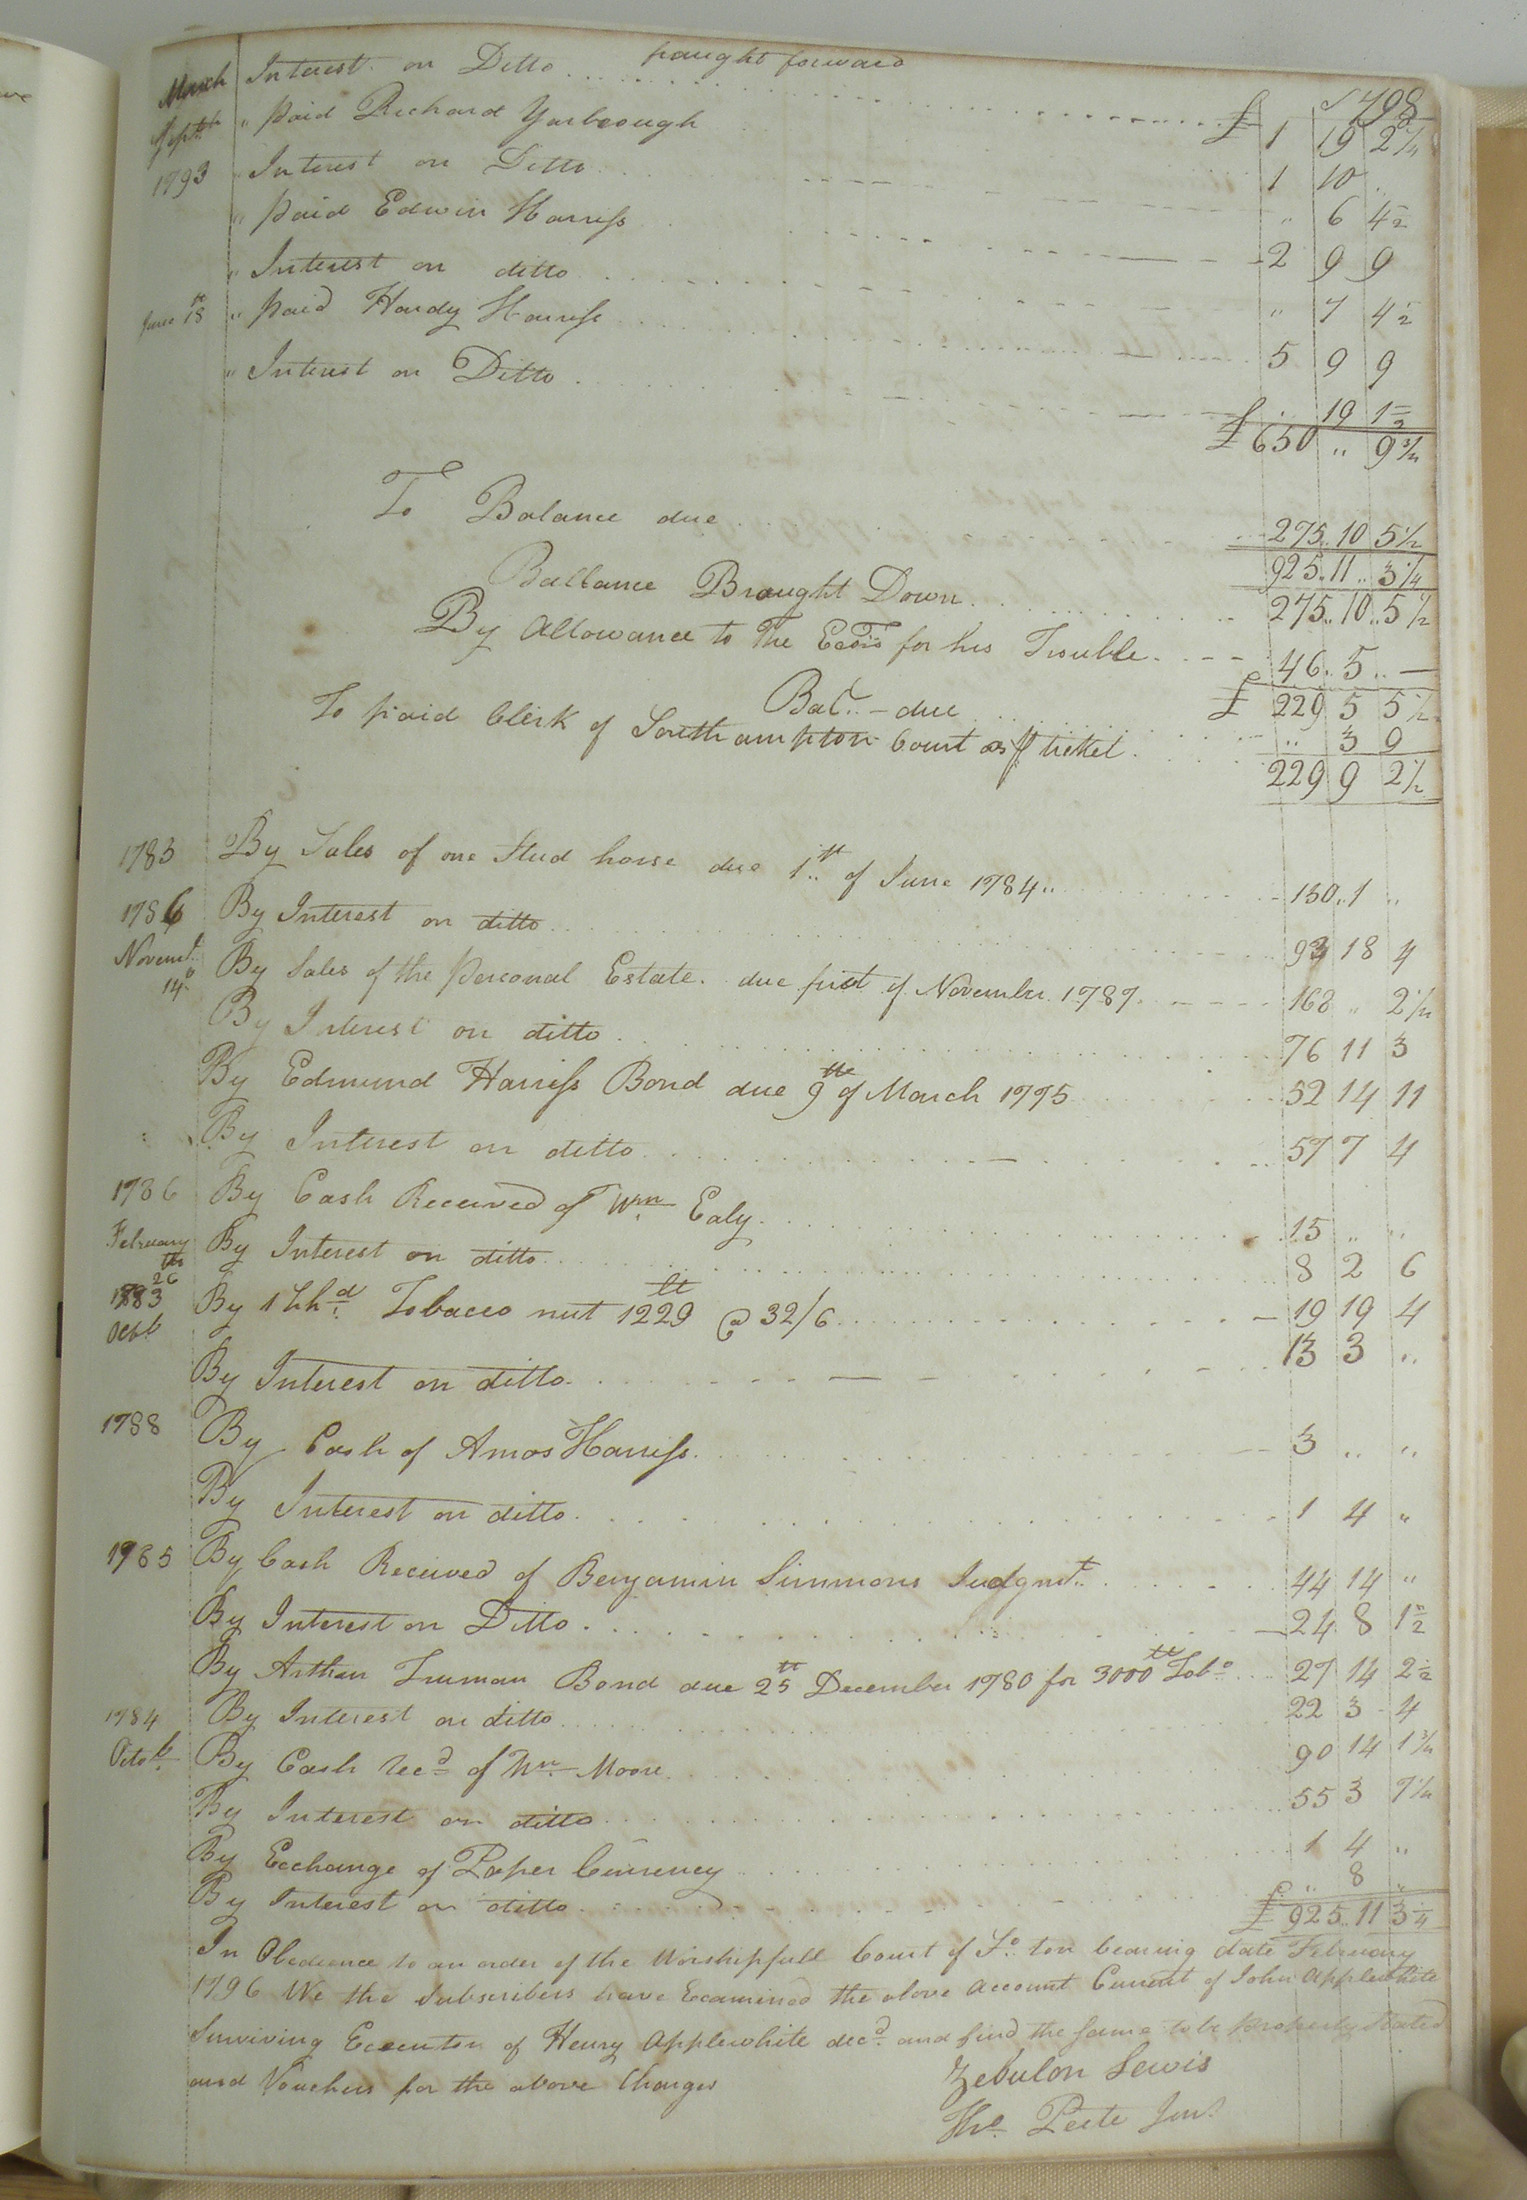 braught forward
March Interest on Ditto £ 1 19 2 1/4
Septr " paid Richard Yarbrough 1 10 "
1793 " Interest on Ditto " 6 4 1/2
" paid Edwin Harriss 2 9 9
" Interest on ditto " 7 4 1/2
June 18 th " paid Hardy Harriss 5 9 9
" Interest on Ditto £ " 19 1 1/2
£ 650 " 9 3/4
To Balance due 275 " 10 5 1/2
925 " 11 " 3 1/4
Ballance Braught Down 275 " 10 " 5 1/2
By Allowance to The Ecors for his Trouble 46 " 5 " —
Bale. due £ 229 5 5 1/2
To paid Clerk of Southampton Court as pr ticket " 3 9
229 9 2 1/2
1783 By Sales of one Stud horse due 1st of June 1784 " 150 " 1 "
1786 By Interest on ditto 93 18 4
Novemr 14 By Sales of the personal Estate. due first of November 1787 168 " 2 1/4
By Interest on ditto 76 11 3
By Edmund Harriss Bond due 9th of March 1775 52 14 11
By Interest on ditto 57 7 4
1786 By Cash Received of Wm Ealy 15 " "
February 26th By Interest on ditto 8 2 6
1783 Octr By 1 Hhd Tobacco nut 1229 lt @ 32/6 19 19 4
By Interest on ditto 13 3 "
1788 By Cash of Amos Harriss 3 " "
By Interest on ditto 1 4 "
1785 By Cash Received of Benjamin Simmons Judgmt 44 14 "
By Interest on Ditto 24 8 1 1/2
By Arthur Truman Bond due 25th December 1780 for 3000 tt Tobo 27 14 2 1/2
1784 By Interest on ditto 22 3 4
Octobr By Cash Recd of Wm Moore 90 14 1 3/4
By Interest on ditto 55 3 7 1/4
By Ecchange of Paper Currency 1 4 "
By Interest on ditto " 8 "
£ 925 " 11 3 1/4
In Obedience to an order of the Worshipfull Court of So. ton bearing date February
1796 We the Subscribers have Ecamined the above Account Current of John Applewhite
Surviving Ececutor of Henry Applewhite decd. and find the same to be properly Stated
and Vouchers for the above Charges
Zebulon Lewis
Tho. Peete Junr.